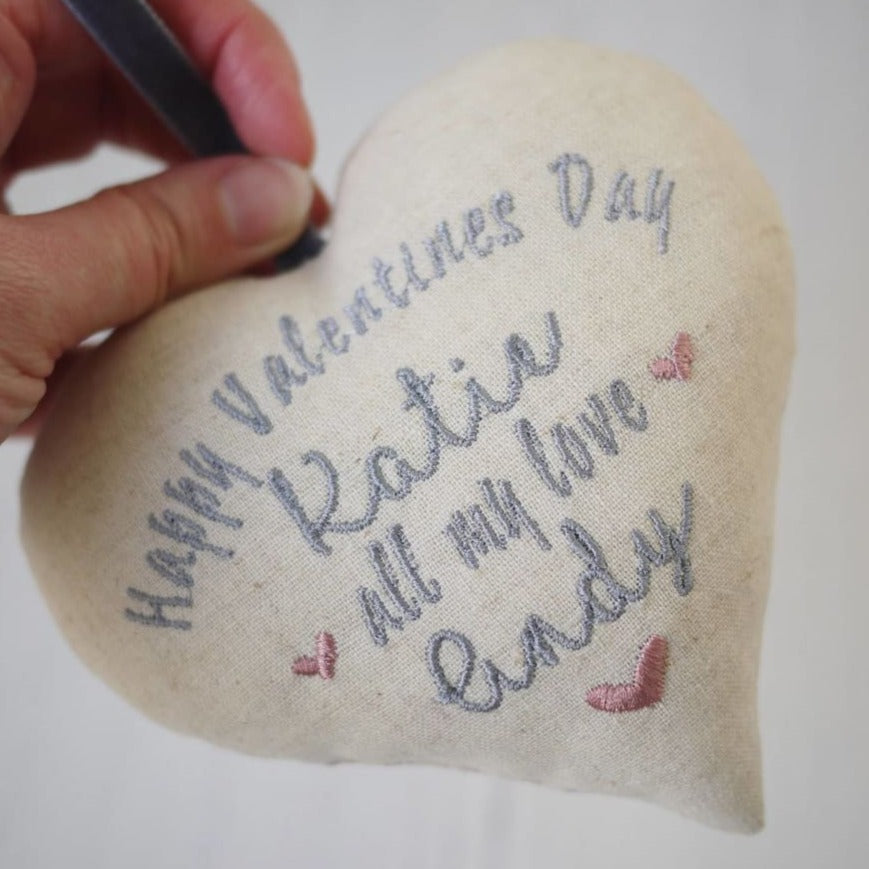 Happy Valentines Day
Katie
all my love
Andy